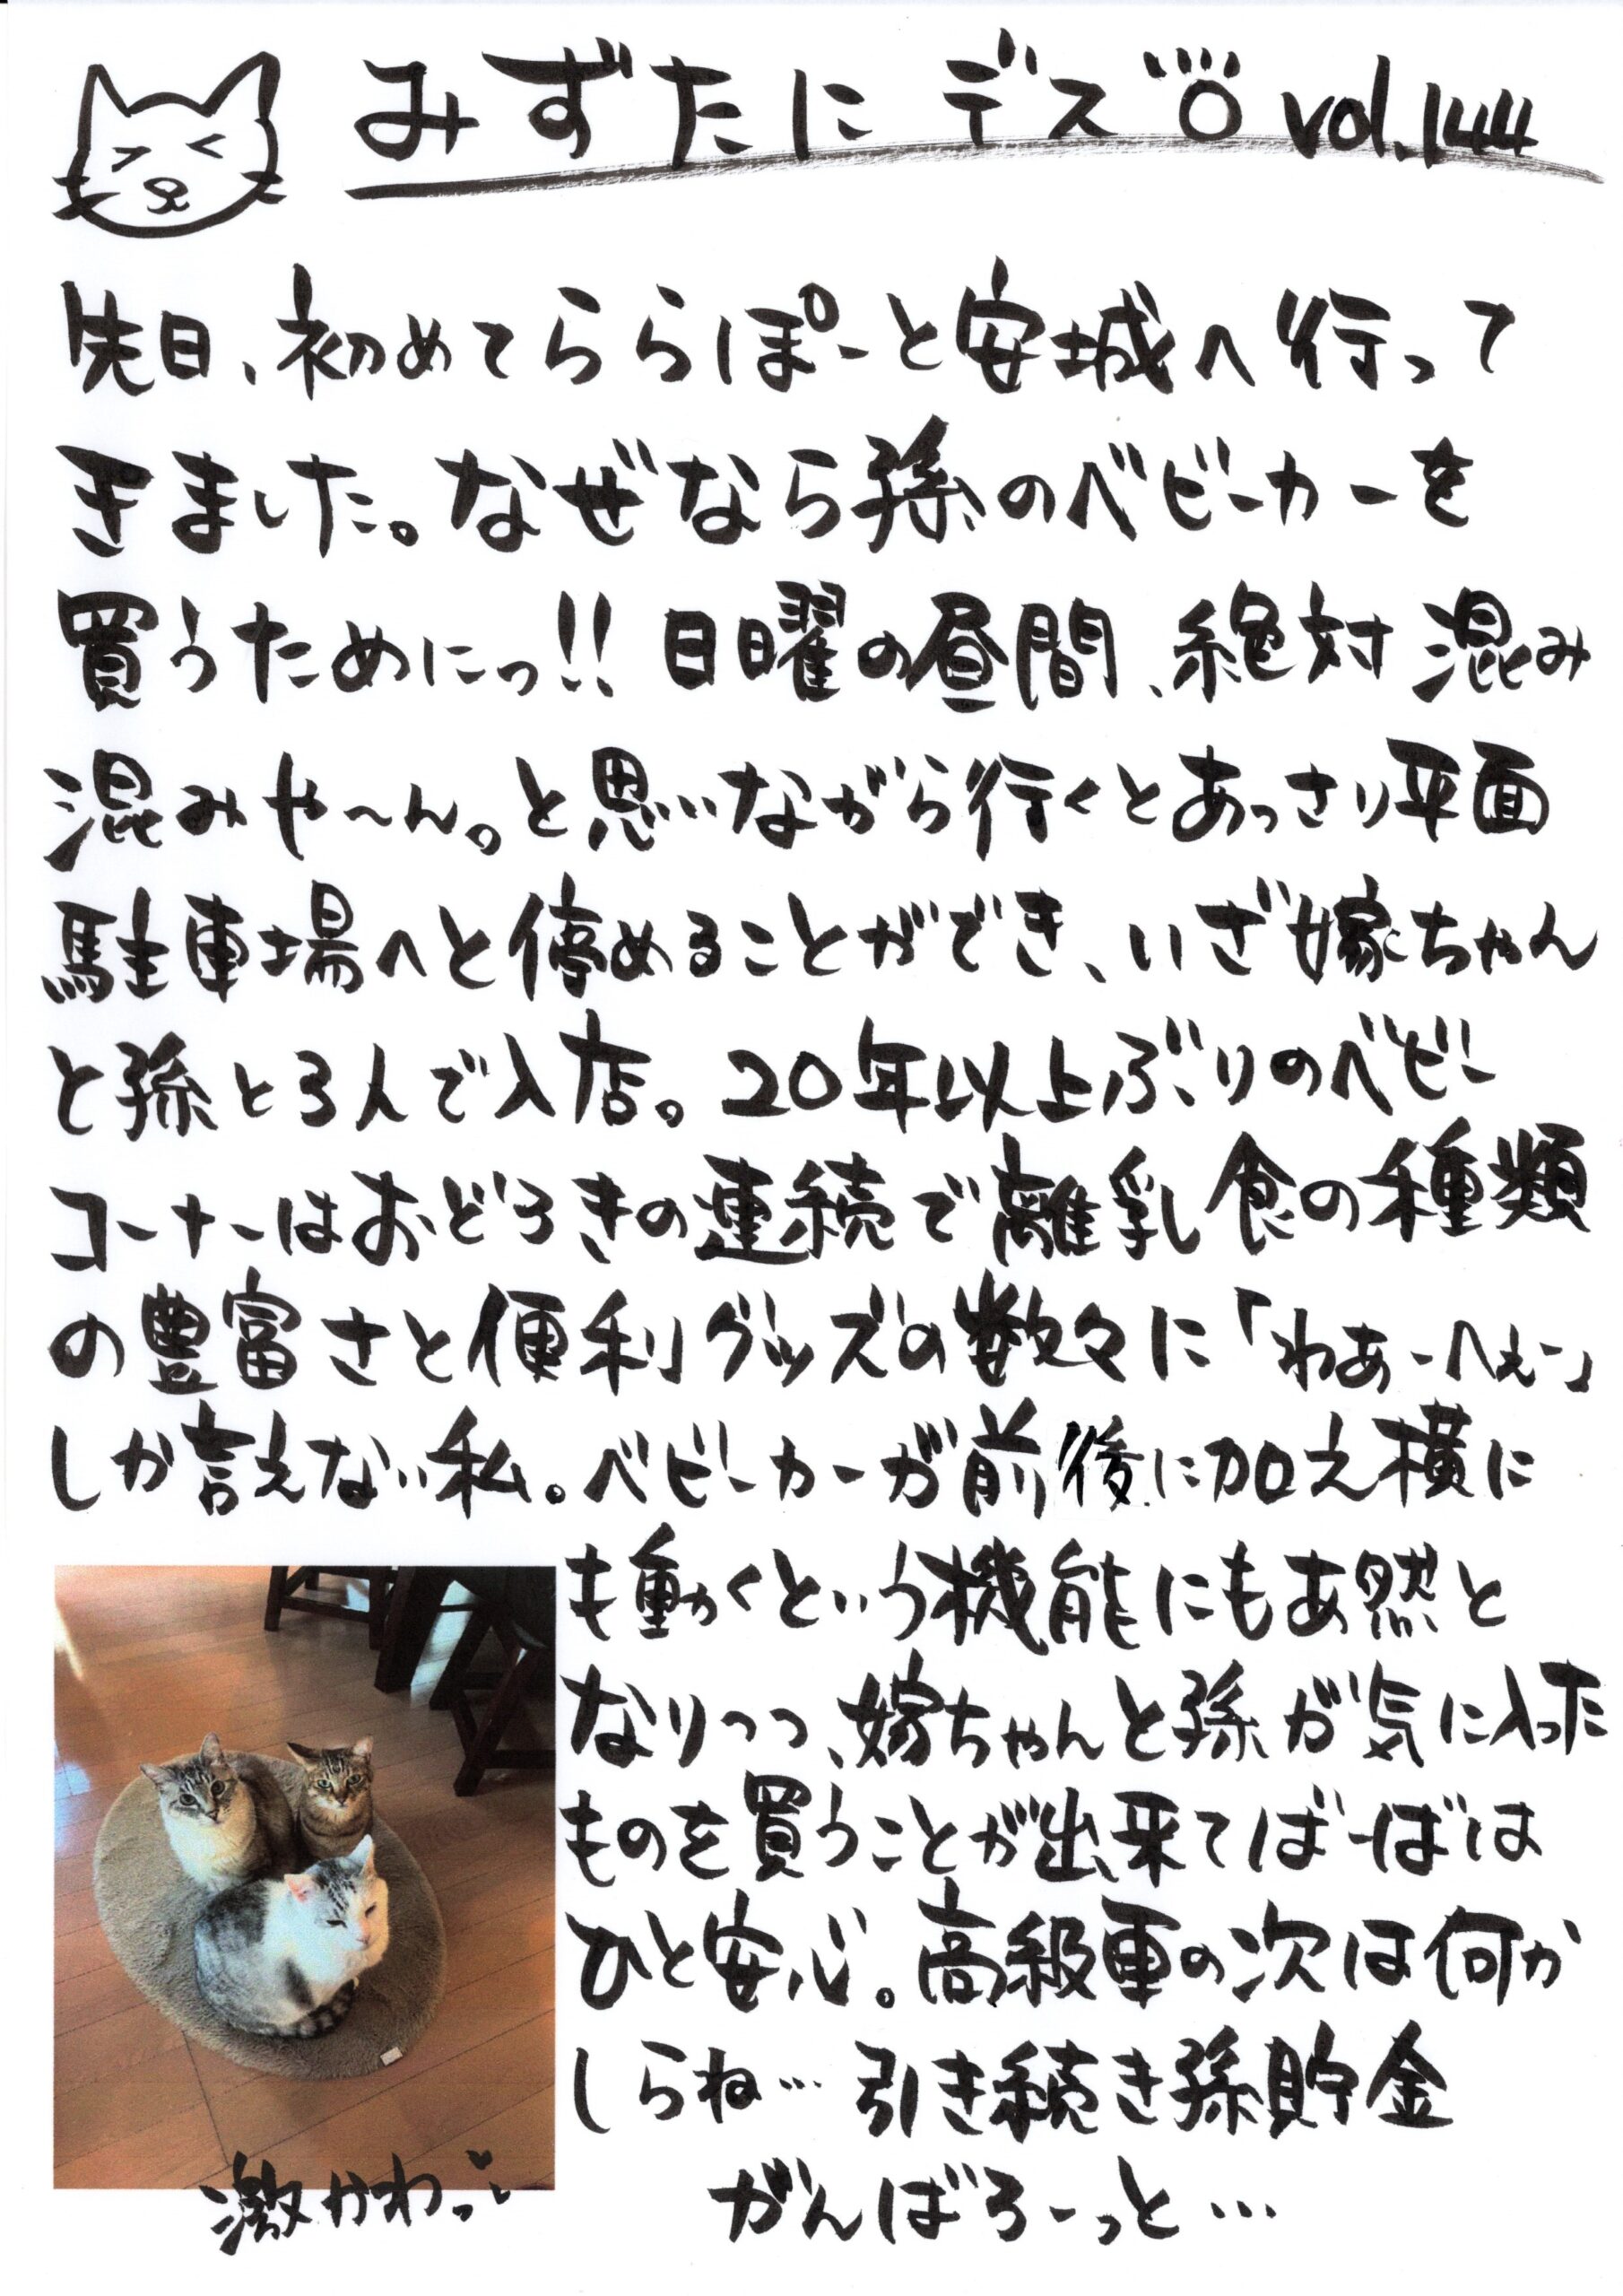 みずたにデス vol.144
先日、初めてららぽーと安城へ行って
きました。なぜなら孫のベビーカーを
買うためにっ!! 日曜の昼間、絶対混み
混みや〜ん。と思いながら行くとあっさり平面
駐車場へと停めることができ、いざ嫁ちゃん
と孫と3人で入店。20年以上ぶりのベビー
コーナーはおどろきの連続で離乳食の種類
の豊富さと便利グッズの数々に「わぁーへぇー」
しか言えない私。ベビーカーが前後に加え横に
も動くという機能にもあ然と
なりつつ、嫁ちゃんと孫が気に入った
ものを買うことが出来てばーばは
ひと安心。高級車の次は何か
しらね… 引き続き孫貯金
がんばろーっと…
激かわっ